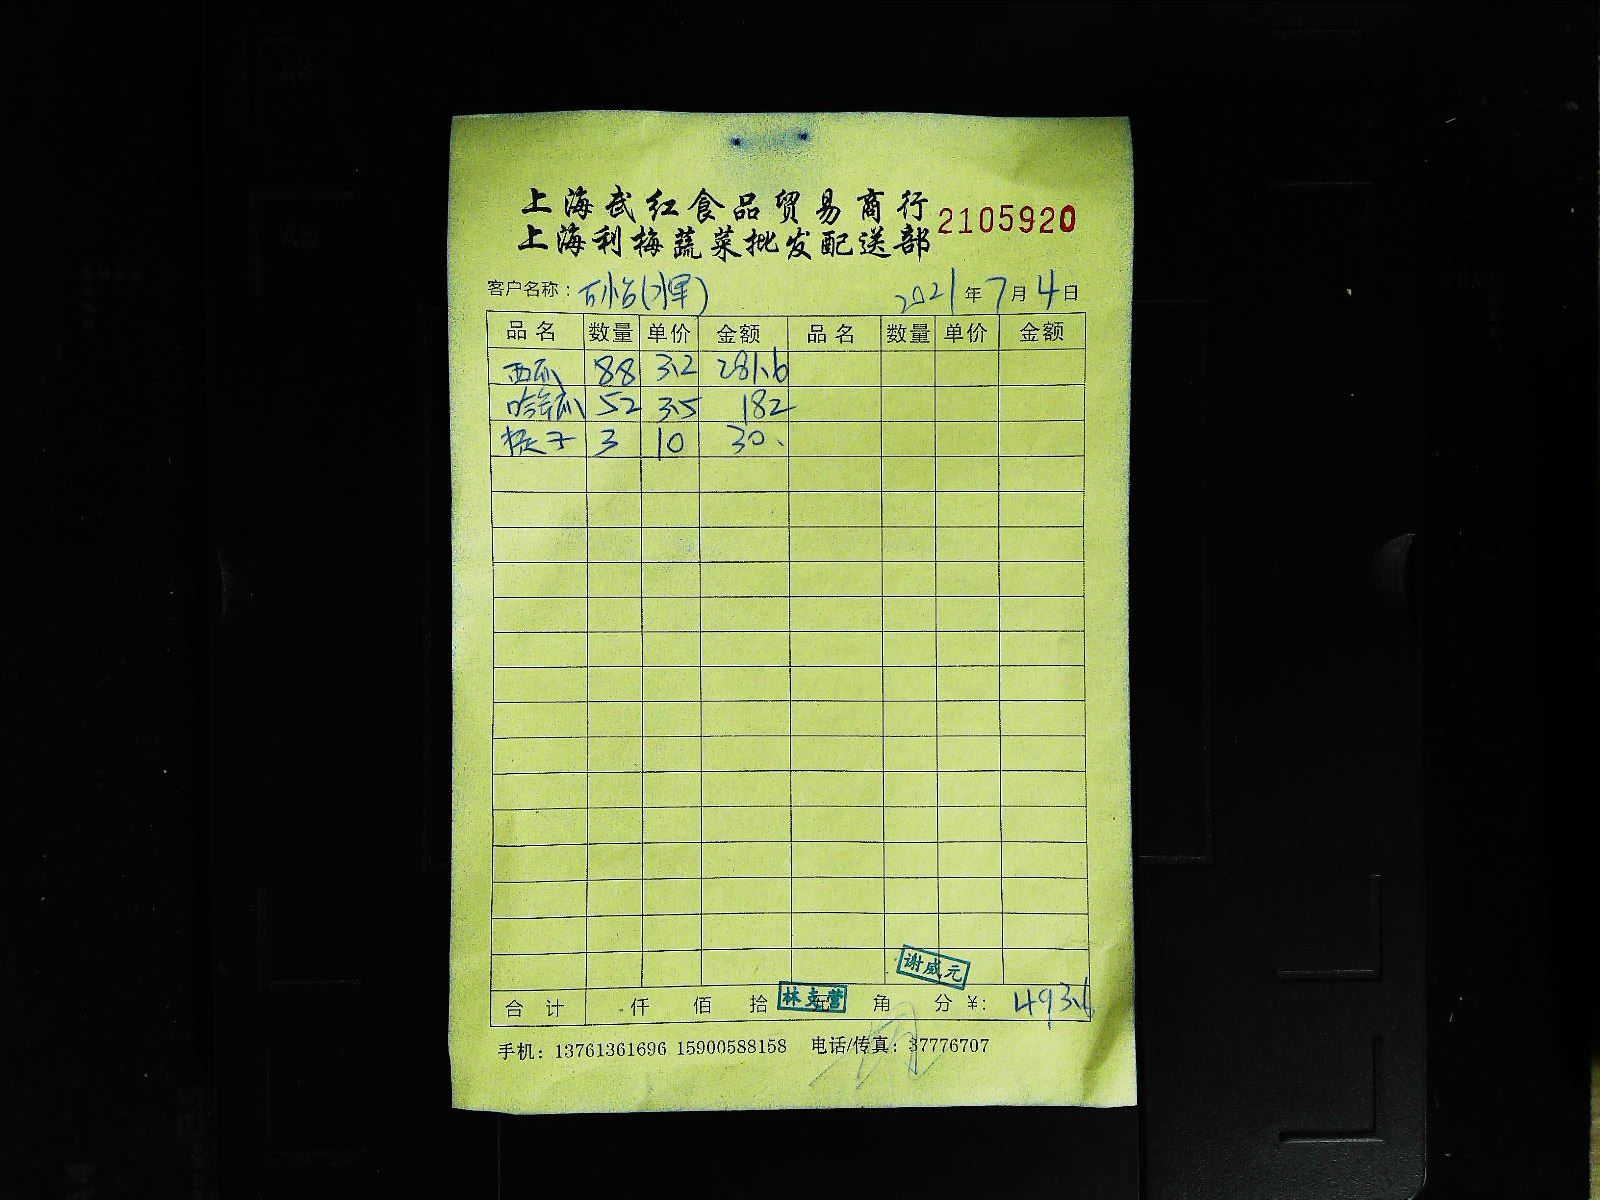 上海武红食品贸易商行
上海利梅蔬菜批发配送部
2105920
客户名称: 2021年7月4日
品名 数量 单价 金额 品名 数量 单价 金额
西瓜 88 3.2 281.6
哈密瓜 52 3.5 182
3 10 30.
谢威元
合计 仟 佰 拾 元 角 分 ¥: 493.6
手机: 13761361696 15900588158 电话/传真: 37776707